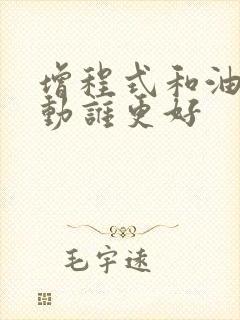 增程式和油
動誰更好
毛宇遠